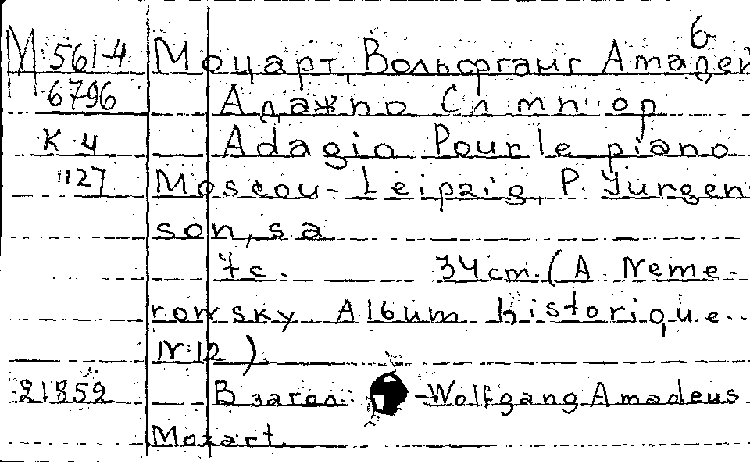 6
М 561-4 Моцарт, Вольфганг Амадей
6796 Адажио Сл тп ор
К 4 Adagio Pour le piano
1127 Moscou-Leipzig, P. Jurgen
son, sa
7с. 34 cm. (A. Neme-
rowsky. Album historique.
N:12)
21852 В загол: -Wolfgang Amadeus
Mozart.